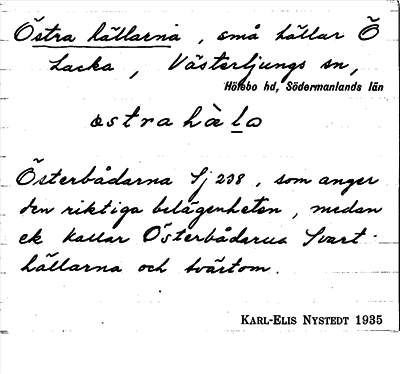 Östra hällarna, små hällar Ö
Lacka, Västerljungs sn,
Hölebo hd, Södermanlands län
östrahàlo
Österbådarna Sj 238, som anger
den riktiga belägenheten, medan
ek kallar Österbådarna Svart-
hällarna och tvärtom.
KARL-ELIS NYSTEDT 1935